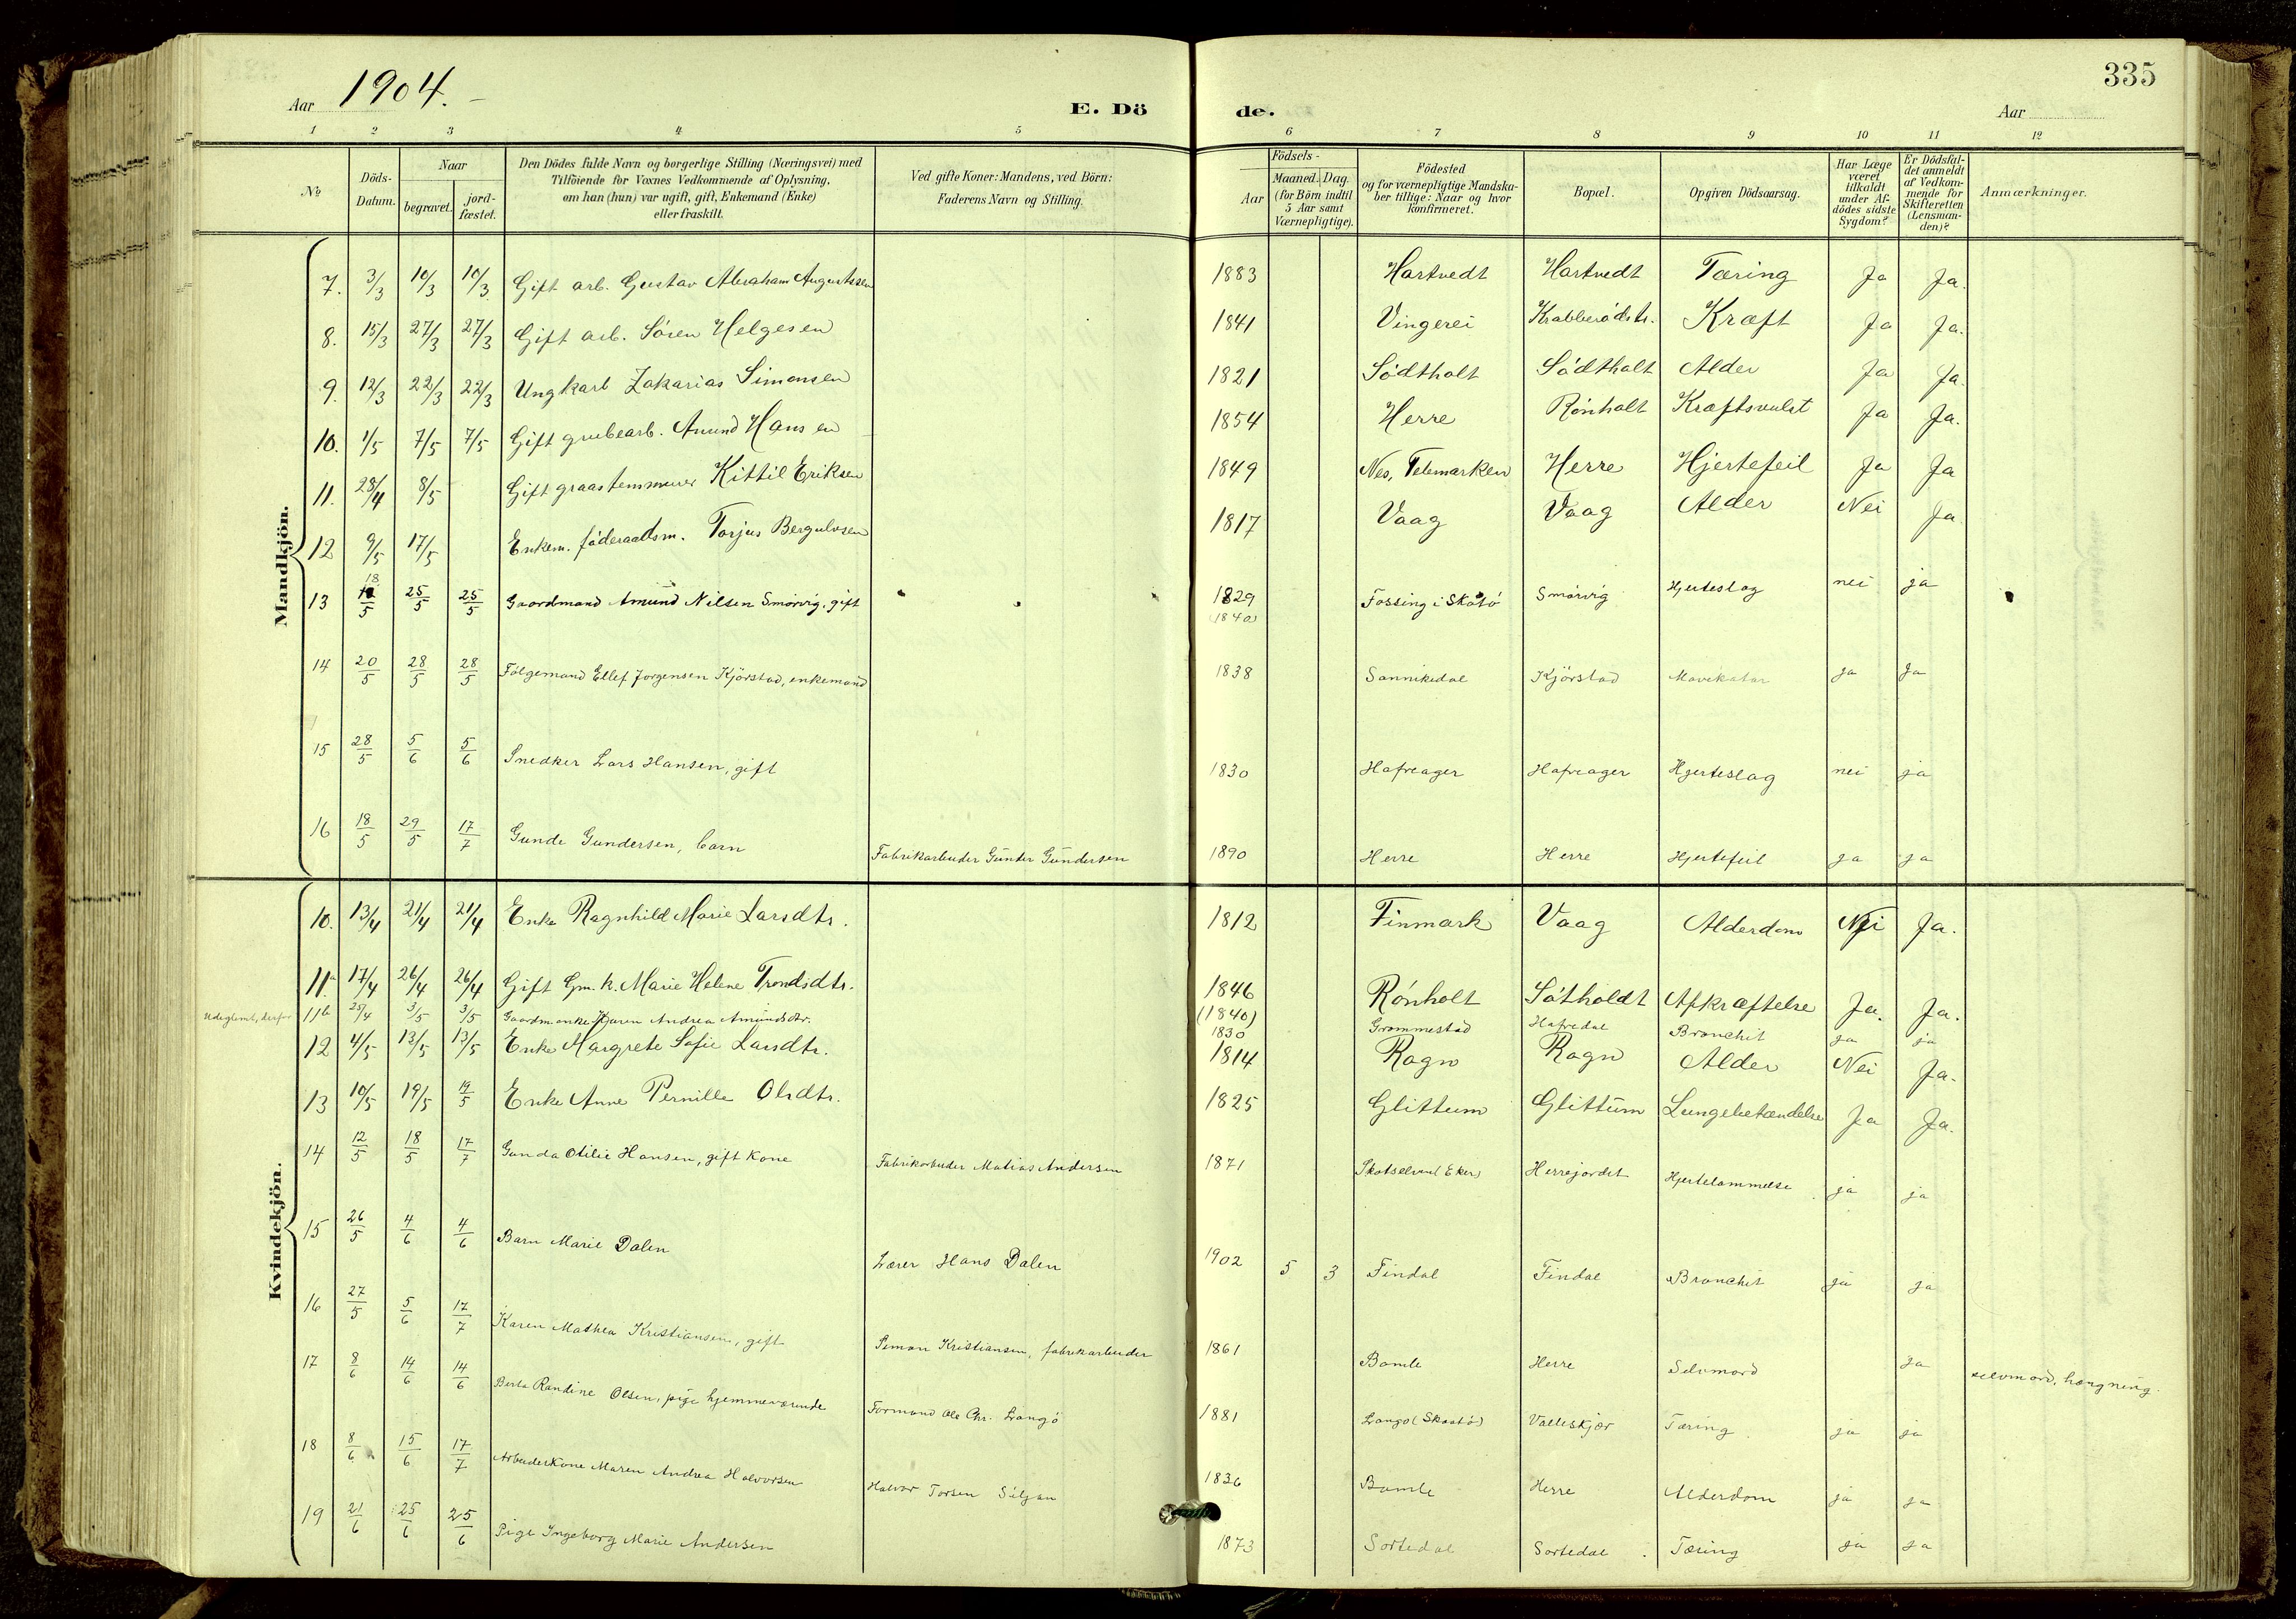 335
Aar 1904. E. Dö de. Aar
1 2 3 4 5 6 7 8 9 10 11 12
No Döds-Datum. Naar begravet. jord-fæstet. Den Dödes fulde Navn og borgerlige Stilling (Næringsvei) med Tilföiende for Voxnes Vedkommende af Oplysning, om han (hun) var ugift, gift, Enkemand (Enke) eller fraskilt. Ved gifte Koner: Mandens, ved Börn: Faderens Navn og Stilling. Födsels- Aar Maaned. Dag. (for Börn indtil 5 Aar samt Værnepligtige). Födested og for værnepligtige Mandska-ber tillige: Naar og hvor konfirmeret. Bopæl. Opgiven Dödsaarsag. Har Læge været tilkaldt under Af-dödes sidste Sygdom? Er Dödsfal-det anmeldt af Vedkom-mende for Skifteretten (Lensman-den)? Anmærkninger.
Mandkjön.
7. 3/3 10/3 10/3 Gift arb. Gustav Abraham Augustssen 1883 Hartvedt Hartvedt Tæring Ja Ja.
8. 15/3 27/3 27/3 Gift arb. Sören Helgesen 1841 Vingerei Krabberödstr. Kræft Ja Ja.
9. 12/3 22/3 22/3 Ungkarl Zakarias Simonsen 1821 Södtholt Södtholt Alder Ja Ja.
10. 1/5 7/5 7/5 Gift grubearb. Anund Hansen 1854 Herre Rönholt Kræftsvulst Ja Ja.
11. 28/4 8/5 Gift graastensmurer Kittil Eriksen 1849 Nes, Telemarken Herre Hjertefeil Ja Ja
12 9/5 17/5 Enkem. föderaadsm. Torjus Bergulvsen 1817 Vaag Vaag Alder Nei Ja
13 18/5 25/5 25/5 Gaardmand Amund Nilsen Smörvig, gift 1829 (1840) Fossing i Skåtö Smörvig Hjerteslag nei ja
14 20/5 28/5 28/5 Fölgemand Ellef Jorgensen Kjörstad, enkemand 1838 Sannikedal Kjörstad Mavekatar ja Ja
15 28/5 5/6 5/6 Snedker Lars Hansen, gift 1830 Hafreager Hafreager Hjerteslag nei ja
16 18/5 29/5 17/7 Gunde Gundersen, barn Fabrikarbeider Gunder Gundersen 1890 Herre Herre Hjertefeil ja ja
Kvindekjön.
10. 13/4 21/4 21/4 Enke Ragnhild Marie Larsdtr. 1812 Finmark Vaag Alderdom Nei Ja.
11a 17/4 26/4 26/4 Gift Gm. k. Marie Helene Trondsdtr. 1846 Rönholt Sötholdt Afkræftelse Ja. Ja.
Udeglemt, derfor 11b 25/4 3/5 3/5 Gaardm.enke Karen Andrea Amundsdtr. (1840) 1830 Grommestad Hafredal Bronchit ja ja
12 4/5 13/5 13/5 Enke Margrete Sofie Larsdtr. 1814 Rogn Rogn Alder Nei Ja.
13 10/5 19/5 19/5 Enke Anne Pernille Olsdtr. 1825 Glittum Glittum Lungebetændelse Ja Ja.
14 12/5 18/5 17/7 Gunda Otilie Hansen, gift kone Fabrikarbeider Matias Andersen 1871 Skotselven (Eker) Herrejordet Hjertelammelse ja ja
15 26/5 4/6 4/6 Barn Marie Dalen Lærer Hans Dalen 1902 5 3 Findal Findal Bronchit ja ja
16 27/5 5/6 17/7 Karen Mathea Kristiansen, gift Simon Kristiansen, fabrikarbeider 1861 Bamle Herre Selvmord Ja selvmord, hængning.
17 8/6 14/6 14/6 Berta Randine Olsen, pige hjemmeværende Formand Ole Chr. Langö 1881 Langö (Skaatö) Valleskjær Tæring ja ja
18 8/6 15/6 17/7 Arbeiderkone Maren Andrea Halvorsen Halvor Torsen Siljan 1836 Bamle Herre Alderdom ja ja
19 21/6 25/6 25/6 Pige Ingeborg Marie Andersen 1873 Sortedal Sortedal Tæring ja ja